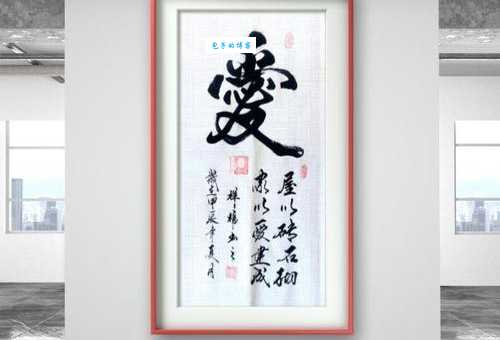 包子的博客
愛
屋以砖石砌
家以爱建成
祥 书之
歲在甲辰年夏月